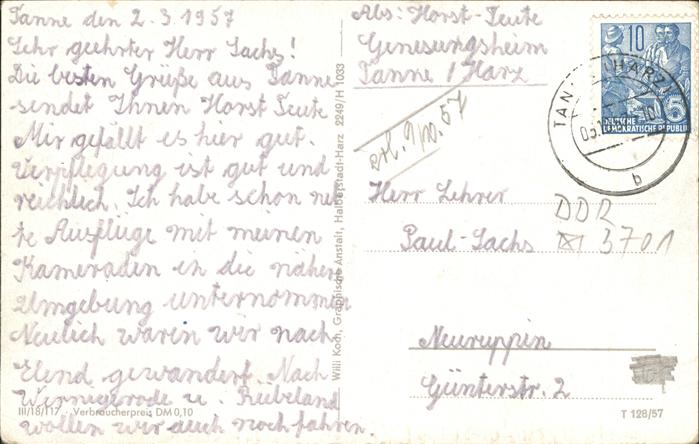 Tanne den 2.3.1957
Sehr geehrter Herr Sachs!
Die besten Grüße aus Tanne
sendet Ihnen Horst Teute
Mir gefällt es hier gut.
Verpflegung ist gut und
reichlich. Ich habe schon net
te Ausflüge mit meinen
Kameraden in die nähere
Umgebung unternommen
Neulich waren wir nach
Elend gewandert. Nach
Wernigerode u. Rübeland
wollen wir auch noch fahren.
III/18/117 · Verbraucherpreis DM 0,10
Willi Koch, Graphische Anstalt, Halberstadt-Harz 2249/H 1033
Abs: Horst-Teute
Genesungsheim
Tanne / Harz
10
DEUTSCHE
DEMOKRATISCHE REPUBLIK
b
Herr Lehrer
Paul-Sachs
DDR
3701
Neuruppin
Günterstr. 2
T 128/57